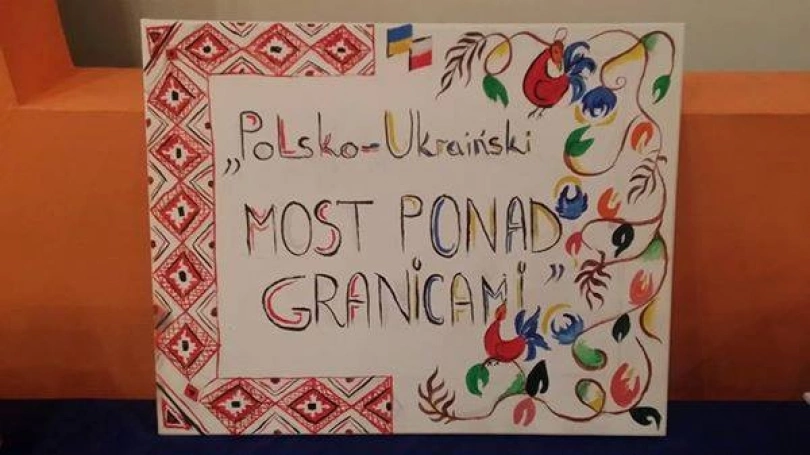 „Polsko-Ukraiński
MOST PONAD
GRANICAMI”